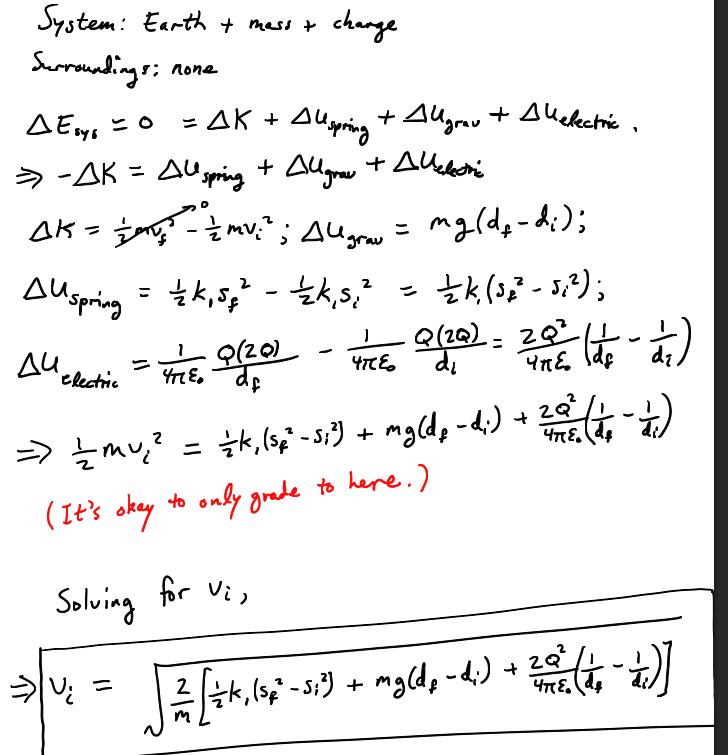 System: Earth + mass + charge
Surroundings: none
ΔE_sys = 0 = ΔK + ΔU_spring + ΔU_grav + ΔU_electric.
⇒ -ΔK = ΔU_spring + ΔU_grav + ΔU_electric
ΔK = ½mv_f² → 0 - ½mv_i²; ΔU_grav = mg(d_f - d_i);
ΔU_spring = ½k₁s_f² - ½k₁s_i² = ½k₁(s_f² - s_i²);
ΔU_electric = 1/(4πε₀) Q(2Q)/d_f - 1/(4πε₀) Q(2Q)/d_i = 2Q²/(4πε₀) (1/d_f - 1/d_i)
⇒ ½mv_i² = ½k₁(s_f² - s_i²) + mg(d_f - d_i) + 2Q²/(4πε₀) (1/d_f - 1/d_i)
(It's okay to only grade to here.)
Solving for v_i,
⇒ v_i = √(2/m [½k₁(s_f² - s_i²) + mg(d_f - d_i) + 2Q²/(4πε₀) (1/d_f - 1/d_i)])